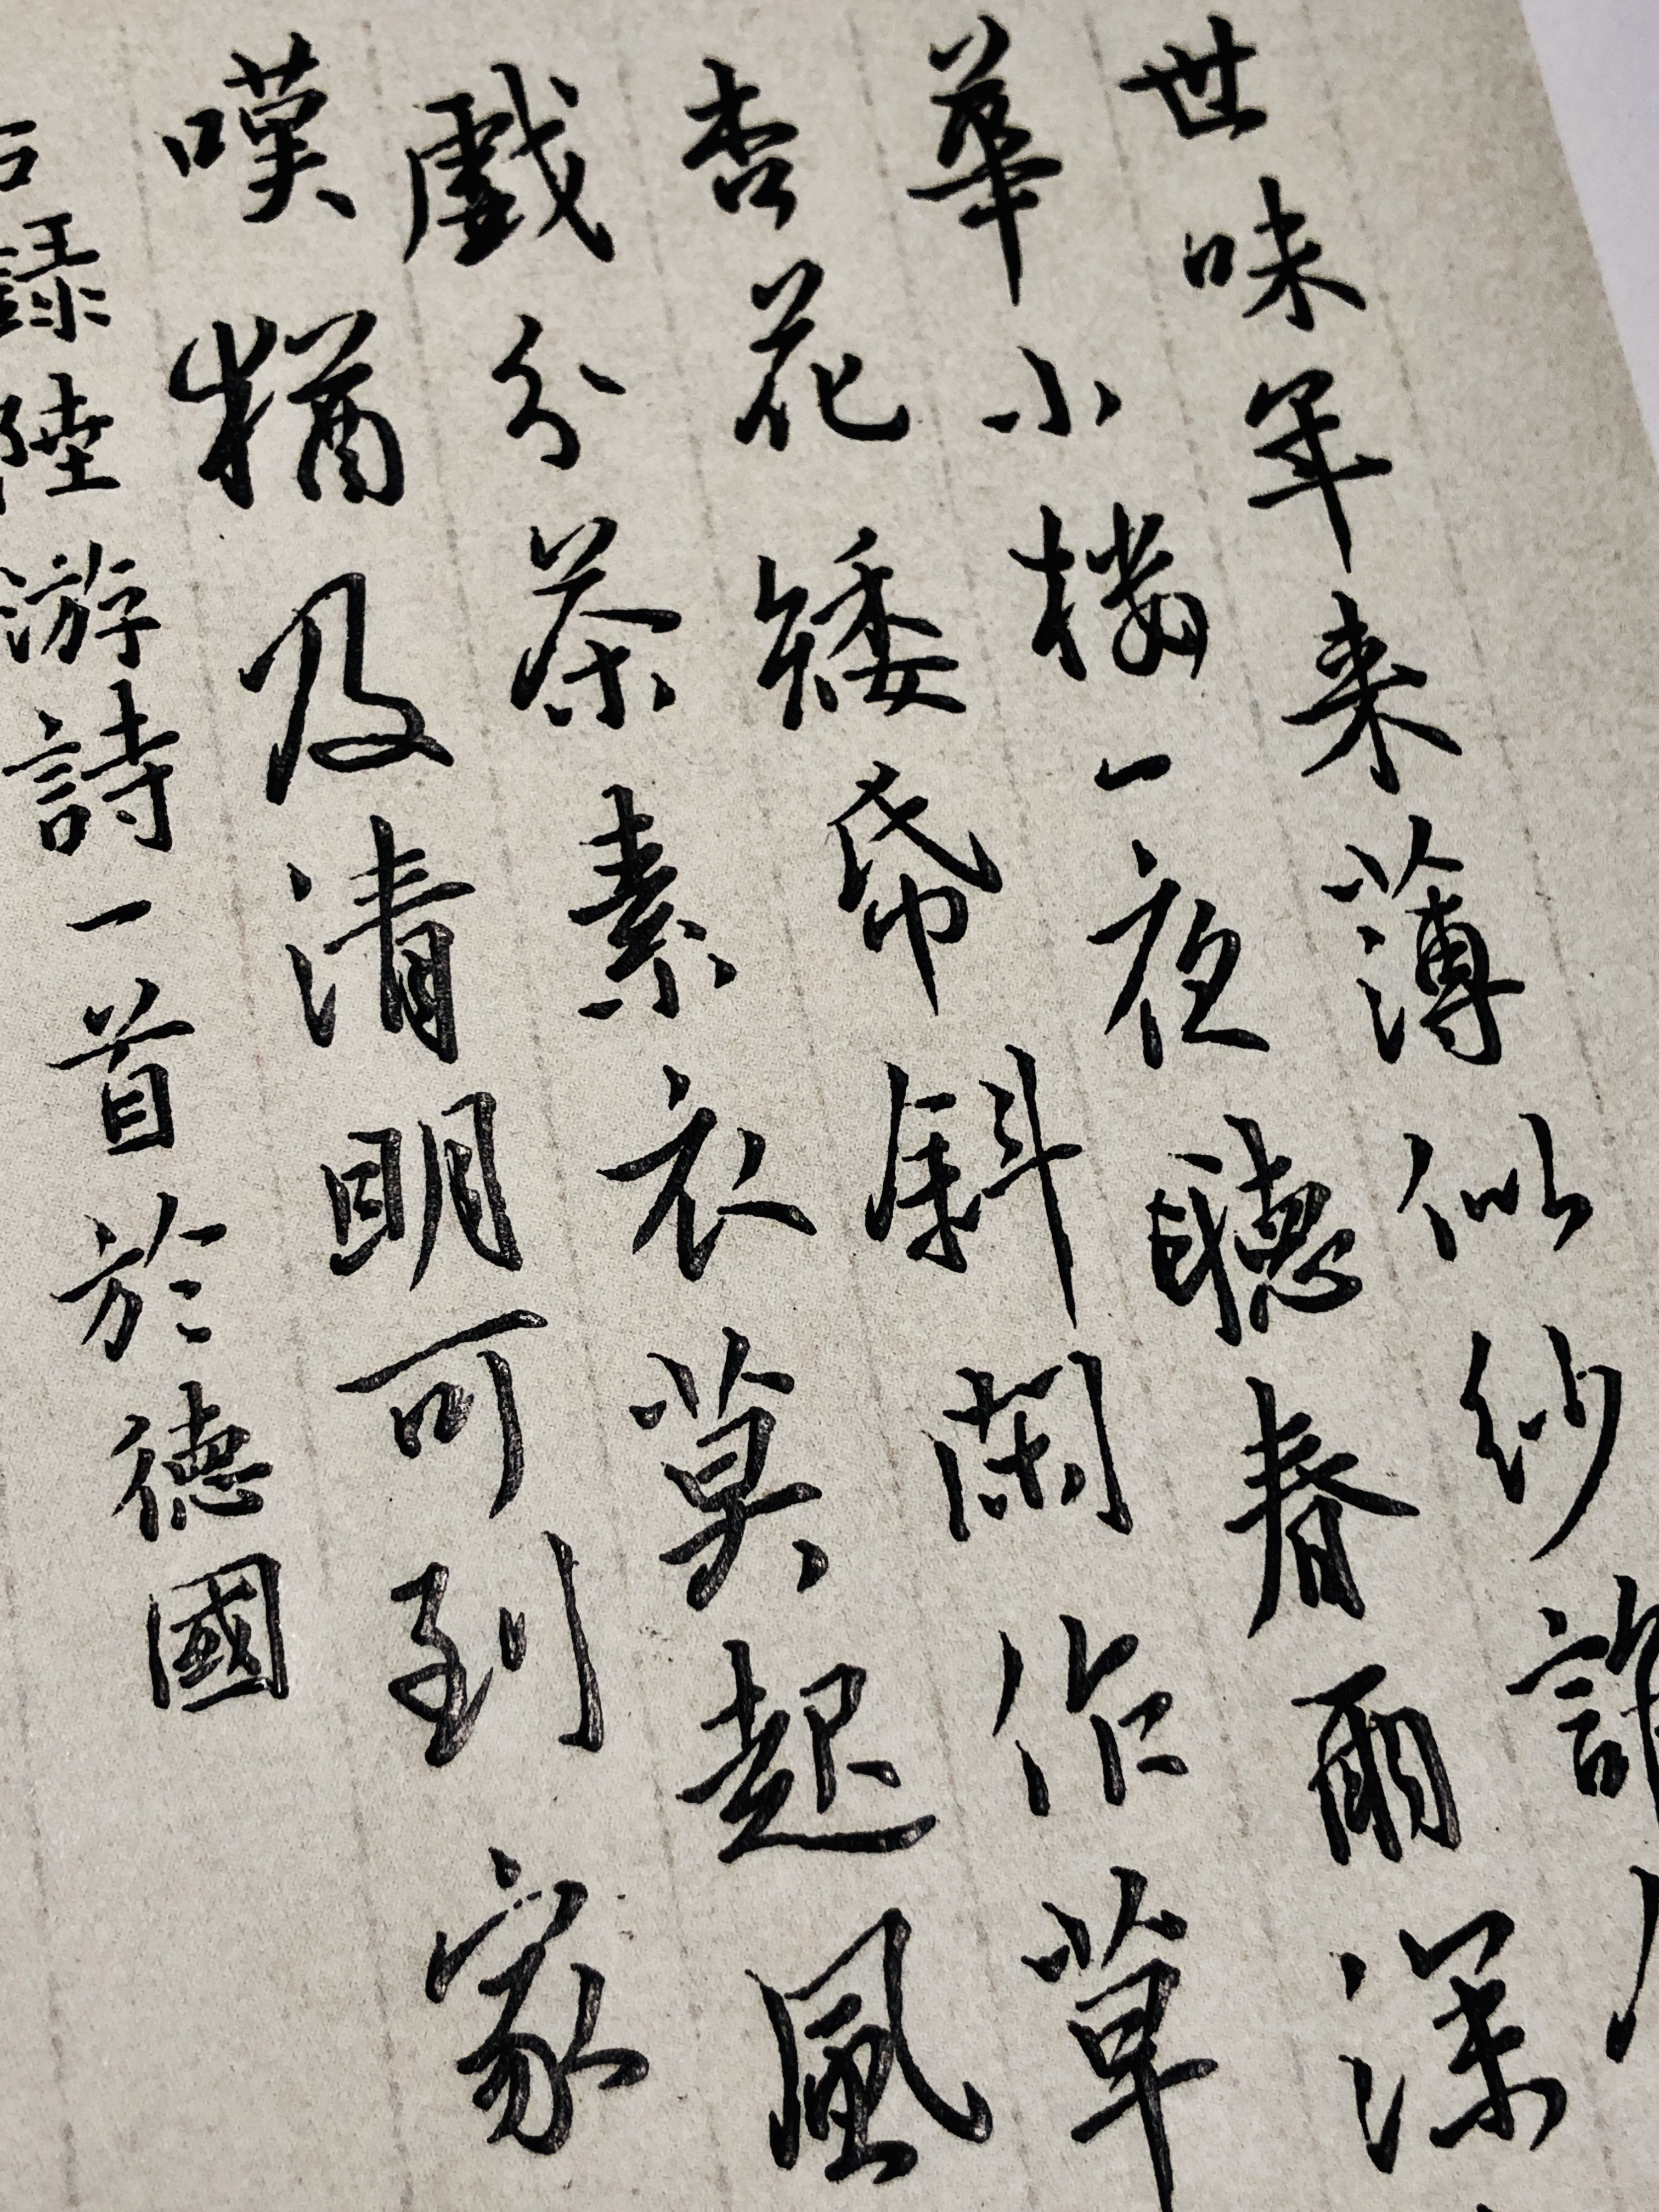 世味年来薄似紗
華小樓一夜聽春雨深
杏花矮帋斜閑作草
戲分茶素衣莫起風
嘆猶及清明可到家
録陸游詩一首於德國